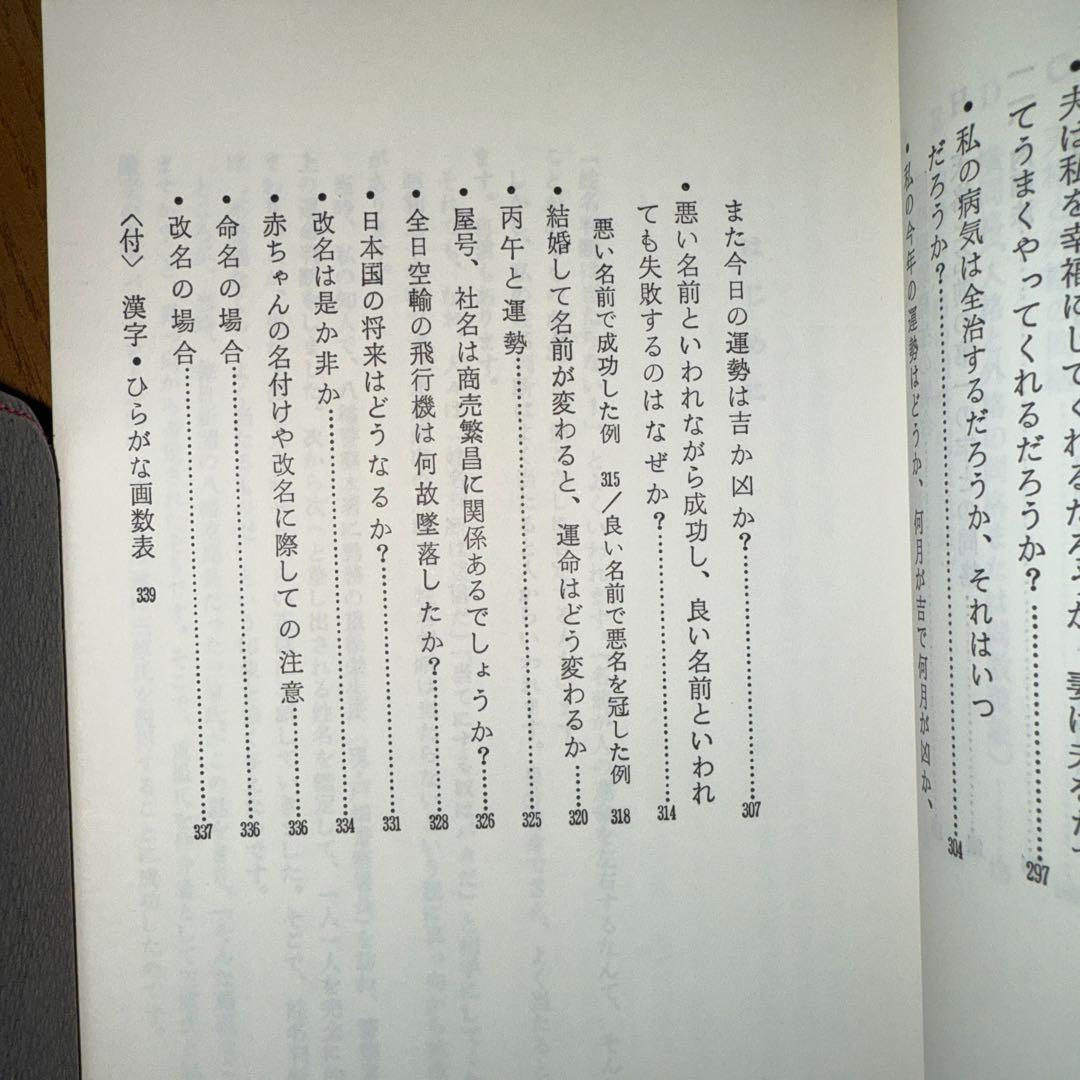 てうまくやってくれるだろうか?……297
・私の病気は全治するだろうか、それはいつ
だろうか?……304
・私の今年の運勢はどうか、何月が吉で何月が凶か、
また今日の運勢は吉か凶か?……307
・悪い名前といわれながら成功し、良い名前といわれ
ても失敗するのはなぜか?……314
悪い名前で成功した例 315/良い名前で悪名を冠した例 318
・結婚して名前が変わると、運命はどう変わるか……320
・丙午と運勢……325
・屋号、社名は商売繁昌に関係あるでしょうか?……326
・全日空輸の飛行機は何故墜落したか?……328
・日本国の将来はどうなるか?……331
・改名は是か非か……334
・赤ちゃんの名付けや改名に際しての注意……336
・命名の場合……336
・改名の場合……337
〈付〉漢字・ひらがな画数表 339